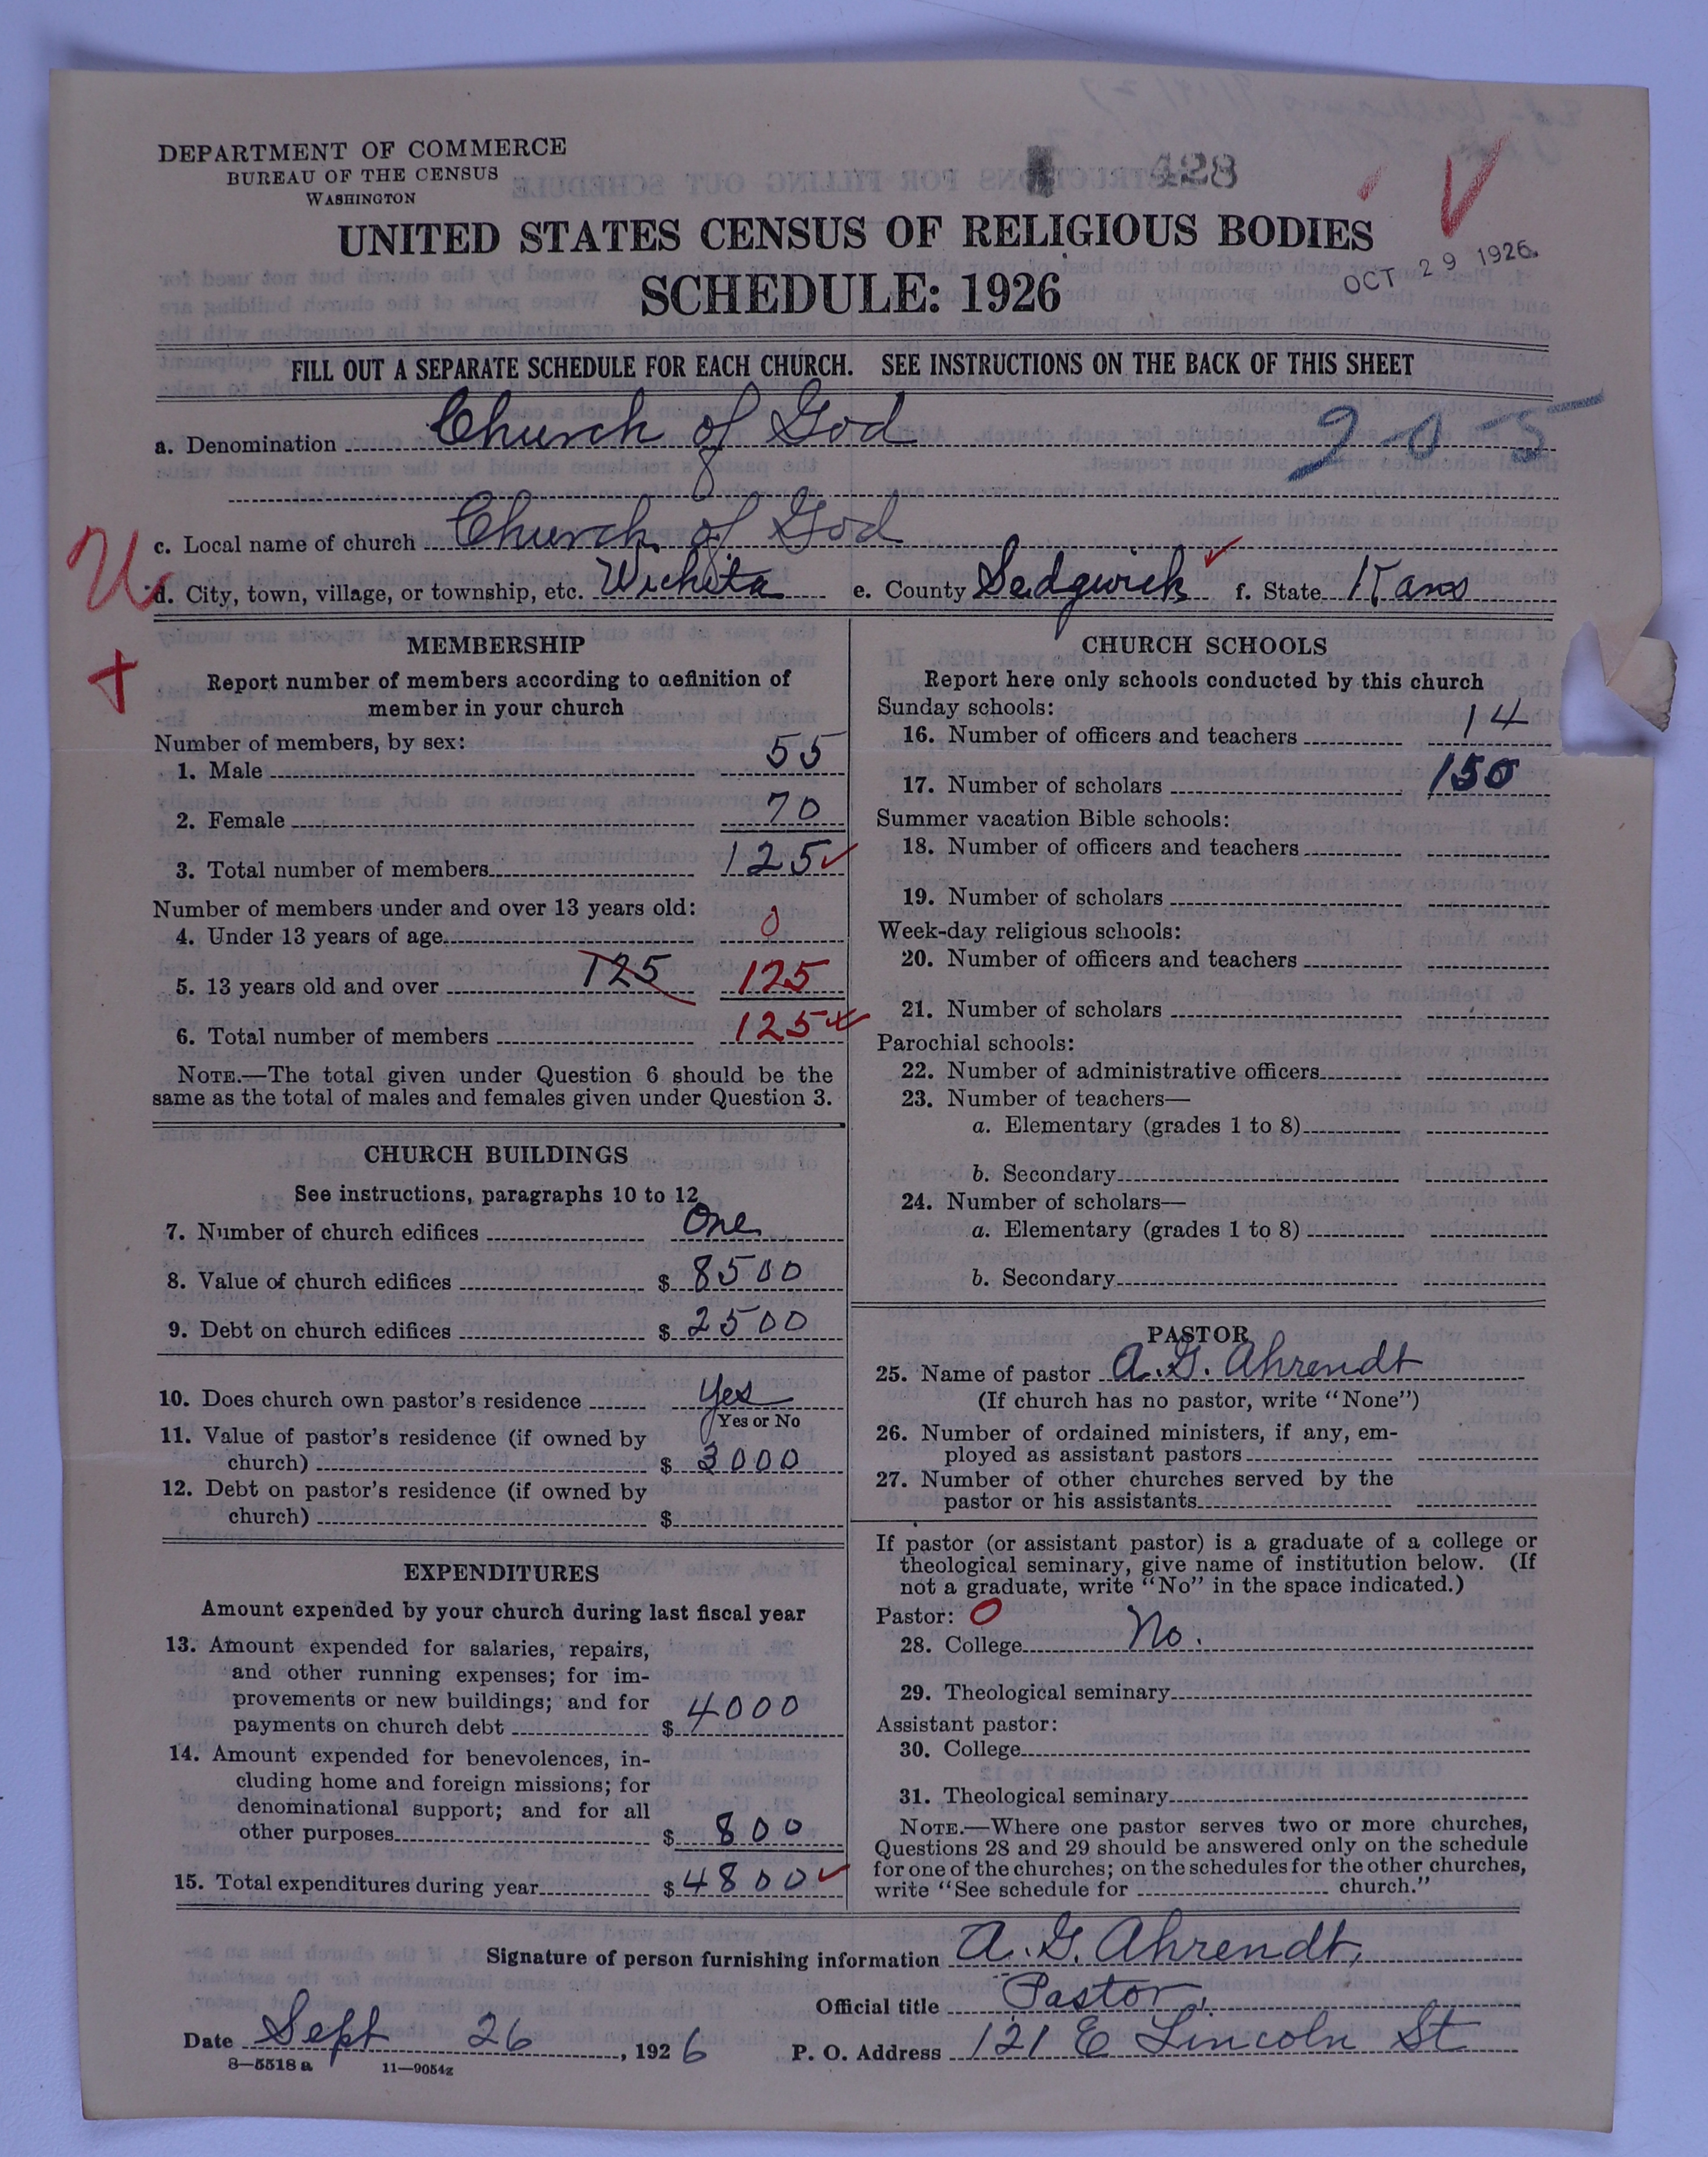 DEPARTMENT OF COMMERCE
BUREAU OF THE CENSUS
WASHINGTON
428
UNITED STATES CENSUS OF RELIGIOUS BODIES
SCHEDULE: 1926
OCT 29 1926
FILL OUT A SEPARATE SCHEDULE FOR EACH CHURCH. SEE INSTRUCTIONS ON THE BACK OF THIS SHEET
a. Denomination Church of God
9-0-5
c. Local name of church Church of God
U
d. City, town, village, or township, etc. Wichita e. County Sedgwick f. State Kans
MEMBERSHIP
Report number of members according to definition of
member in your church
Number of members, by sex:
1. Male 55
2. Female 70
3. Total number of members 125
Number of members under and over 13 years old:
4. Under 13 years of age 0
5. 13 years old and over 125 125
6. Total number of members 125
NOTE.—The total given under Question 6 should be the
same as the total of males and females given under Question 3.
CHURCH BUILDINGS
See instructions, paragraphs 10 to 12
7. Number of church edifices One
8. Value of church edifices $ 8500
9. Debt on church edifices $ 2500
10. Does church own pastor's residence Yes
Yes or No
11. Value of pastor's residence (if owned by
church) $ 3000
12. Debt on pastor's residence (if owned by
church) $
EXPENDITURES
Amount expended by your church during last fiscal year
13. Amount expended for salaries, repairs,
and other running expenses; for im-
provements or new buildings; and for
payments on church debt $ 4000
14. Amount expended for benevolences, in-
cluding home and foreign missions; for
denominational support; and for all
other purposes $ 800
15. Total expenditures during year $ 4800
CHURCH SCHOOLS
Report here only schools conducted by this church
Sunday schools:
16. Number of officers and teachers 14
17. Number of scholars 150
Summer vacation Bible schools:
18. Number of officers and teachers
19. Number of scholars
Week-day religious schools:
20. Number of officers and teachers
21. Number of scholars
Parochial schools:
22. Number of administrative officers
23. Number of teachers—
a. Elementary (grades 1 to 8)
b. Secondary
24. Number of scholars—
a. Elementary (grades 1 to 8)
b. Secondary
PASTOR
25. Name of pastor A. G. Ahrendt
(If church has no pastor, write "None")
26. Number of ordained ministers, if any, em-
ployed as assistant pastors
27. Number of other churches served by the
pastor or his assistants
If pastor (or assistant pastor) is a graduate of a college or
theological seminary, give name of institution below. (If
not a graduate, write "No" in the space indicated.)
Pastor: 0
28. College No.
29. Theological seminary
Assistant pastor:
30. College
31. Theological seminary
NOTE.—Where one pastor serves two or more churches,
Questions 28 and 29 should be answered only on the schedule
for one of the churches; on the schedules for the other churches,
write "See schedule for church."
Signature of person furnishing information A. G. Ahrendt,
Official title Pastor,
Date Sept 26, 1926
P. O. Address 121 E Lincoln St
8—5518 a 11—9054z